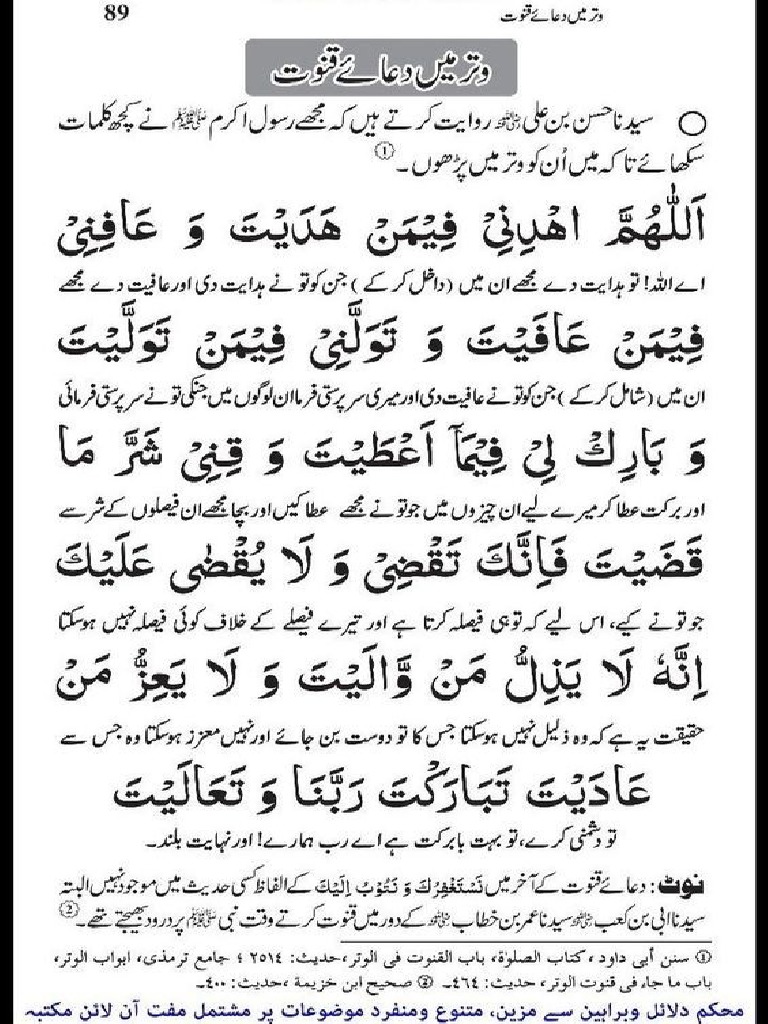 وتر میں دعائے قنوت 89
وتر میں دعائے قنوت
سیدنا حسن بن علی رضی اللہ عنہ روایت کرتے ہیں کہ مجھے رسول اکرم ﷺ نے کچھ کلمات
سکھائے تاکہ میں اُن کو وتر میں پڑھوں۔①
اَللّٰهُمَّ اهْدِنِيْ فِيْمَنْ هَدَيْتَ وَ عَافِنِيْ
اے اللہ! تو ہدایت دے مجھے ان میں (داخل کر کے) جن کو تو نے ہدایت دی اور عافیت دے مجھے
فِيْمَنْ عَافَيْتَ وَ تَوَلَّنِيْ فِيْمَنْ تَوَلَّيْتَ
ان میں (شامل کر کے) جن کو تو نے عافیت دی اور میری سرپرستی فرما ان لوگوں میں جنکی تو نے سرپرستی فرمائی
وَ بَارِكْ لِيْ فِيْمَآ اَعْطَيْتَ وَ قِنِيْ شَرَّ مَا
اور برکت عطا کر میرے لیے ان چیزوں میں جو تو نے مجھے عطا کیں اور بچا مجھے ان فیصلوں کے شر سے
قَضَيْتَ فَاِنَّكَ تَقْضِيْ وَ لَا يُقْضٰى عَلَيْكَ
جو تو نے کیے، اس لیے کہ تو ہی فیصلہ کرتا ہے اور تیرے فیصلے کے خلاف کوئی فیصلہ نہیں ہو سکتا
اِنَّهٗ لَا يَذِلُّ مَنْ وَّالَيْتَ وَ لَا يَعِزُّ مَنْ
حقیقت یہ ہے کہ وہ ذلیل نہیں ہو سکتا جس کا تو دوست بن جائے اور نہیں معزز ہو سکتا وہ جس سے
عَادَيْتَ تَبَارَكْتَ رَبَّنَا وَ تَعَالَيْتَ
تو دشمنی کرے، تو بہت بابرکت ہے اے رب ہمارے! اور نہایت بلند۔
نوٹ: دعائے قنوت کے آخر میں نَسْتَغْفِرُكَ وَ نَتُوْبُ اِلَيْكَ کے الفاظ کسی حدیث میں موجود نہیں البتہ
سیدنا ابی بن کعب رضی اللہ عنہ سیدنا عمر بن خطاب رضی اللہ عنہ کے دور میں قنوت کرتے وقت نبی ﷺ پر درود بھیجتے تھے۔②
① سنن أبی داود، کتاب الصلوٰۃ، باب القنوت فی الوتر، حدیث: ۲۵۱۴؛ جامع ترمذی، ابواب الوتر،
باب ما جاء فی قنوت الوتر، حدیث: ۴۶۴۔ ② صحیح ابن خزیمة، حدیث: ۴۰۰۔
محکم دلائل وبراہین سے مزین، متنوع ومنفرد موضوعات پر مشتمل مفت آن لائن مکتبہ